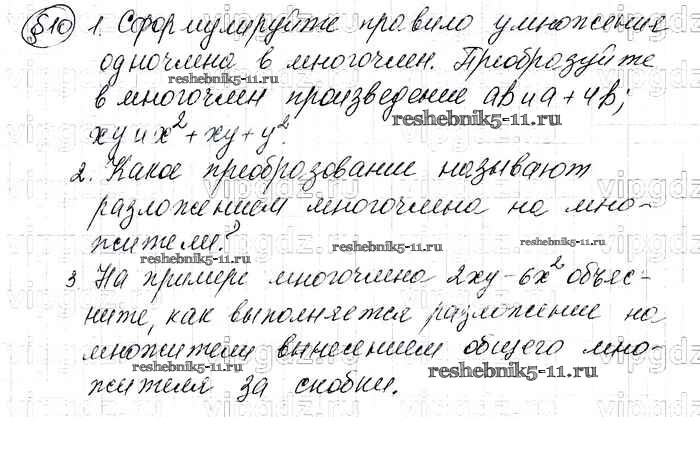 §10 1. Сформулируйте правило умножения
одночлена в многочлен. Преобразуйте
reshebnik5-11.ru
в многочлен произведение ab и a + 4b;
reshebnik5-11.ru
xy и x² + xy + y².
2. Какое преобразование называют
разложением многочлена на мно-
жители?
reshebnik5-11.ru
reshebnik5-11.ru
3 На примере многочлена 2xy - 6x² объяс-
ните, как выполняется разложение на
множители вынесением общего мно-
reshebnik5-11.ru
reshebnik5-11.ru
жителя за скобки.